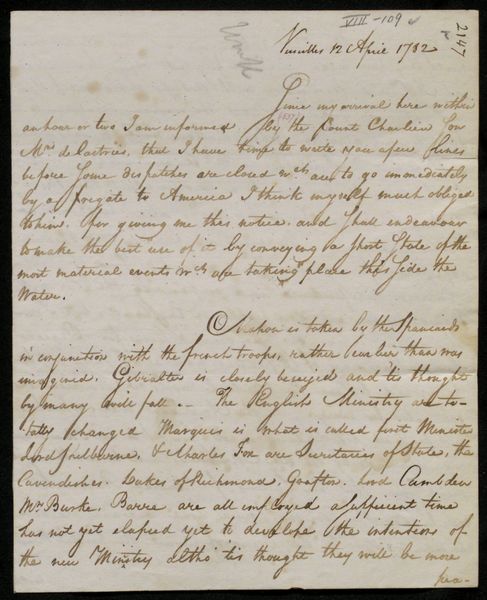 VIII-109
2147
Versailles 12 April 1782
Since my arrival here within
an hour or two I am informed by the Count Charlien Son
Mrs. de Castries, that I have time to write you a few lines
before Some dispatches are closed wch are to go immediately
by a fregate to America I think myself much obliged
to him. for giving me this notice. and Shall endeavour
to make the best use of it by conveying a Short State of the
most material events wch are taking place this Side the
Water.
Mahon is taken by the Spaniards
in conjunction with the french troops, rather earlier than was
imagined. Gibralter is closely beseiged and tis thought
by many will fall. – The English Ministry are to-
tally changed Marquis is what is called first Minister
Lord Shelburne, & Charles Fox are Secretaries of State, the
Cavendishes. Dukes of Richmond, Grafton. Lord Cambden
Mr Burke, Barre are all employed a sufficient time
has not yet elapsed yet to develope the intentions of
the new Ministry altho' tis thought they will be more
pea-